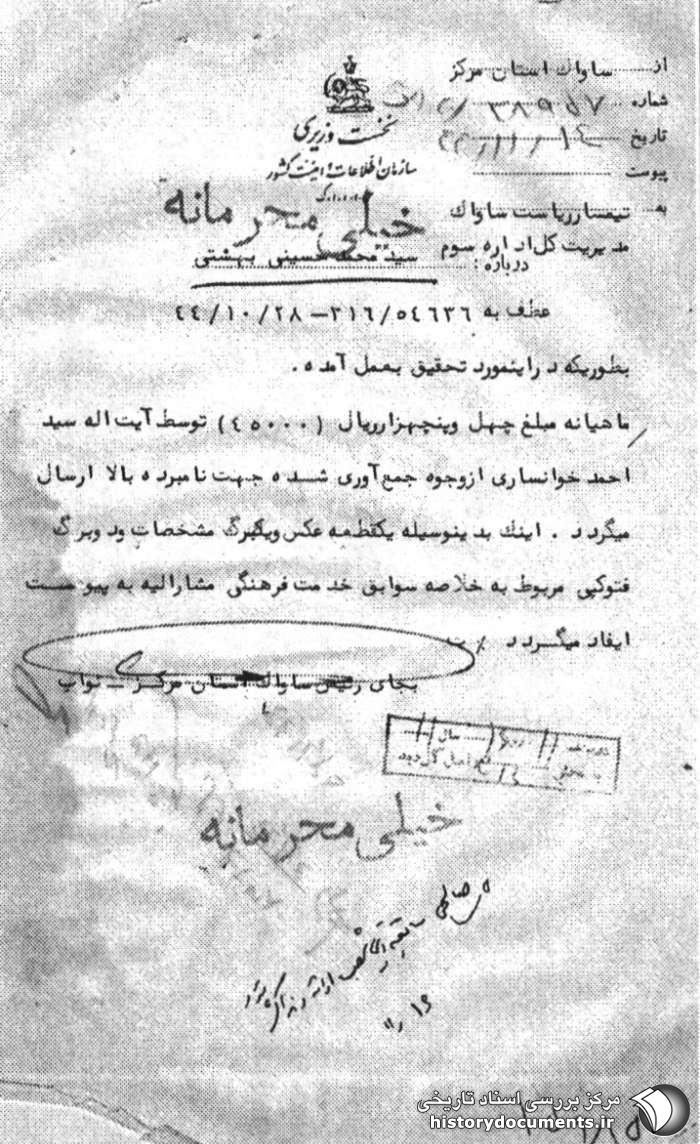 از ساواك استان مركز
شماره
تاریخ
پیوست
نخست وزیری
سازمان اطلاعات و امنیت کشور
س.ا.و.ا.ك
خیلی محرمانه
به تیمسار ریاست ساواك
مدیریت کل اداره سوم
درباره : سید محمد حسینی بهشتی
عطف به ٣١٦/٥٤٦٣٦ – ٤٤/١٠/٢٨
بطوریکه در اینمورد تحقیق بعمل آمده .
ماهیانه مبلغ چهل وپنجهزارریال (٤٥٠٠٠) توسط آیت اله سید
احمد خوانساری ازوجوه جمع آوری شده جهت نامبرده بالا ارسال
میگردد . اینك بدینوسیله یکقطعه عکس ویکبرگ مشخصات ودوبرگ
فتوکپی مربوط به خلاصه سوابق خدمت فرهنگی مشارالیه به پیوست
ایفاد میگردد
بجای رئیس ساواك استان مرکز – نواب
خیلی محرمانه
مرکز بررسی اسناد تاریخی
historydocuments.ir